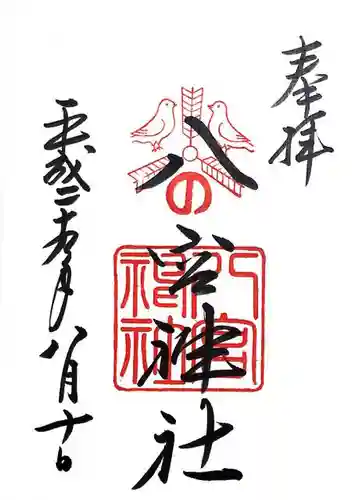 奉拝
八の宮神社
八宮神社
平成二十九年八月十日